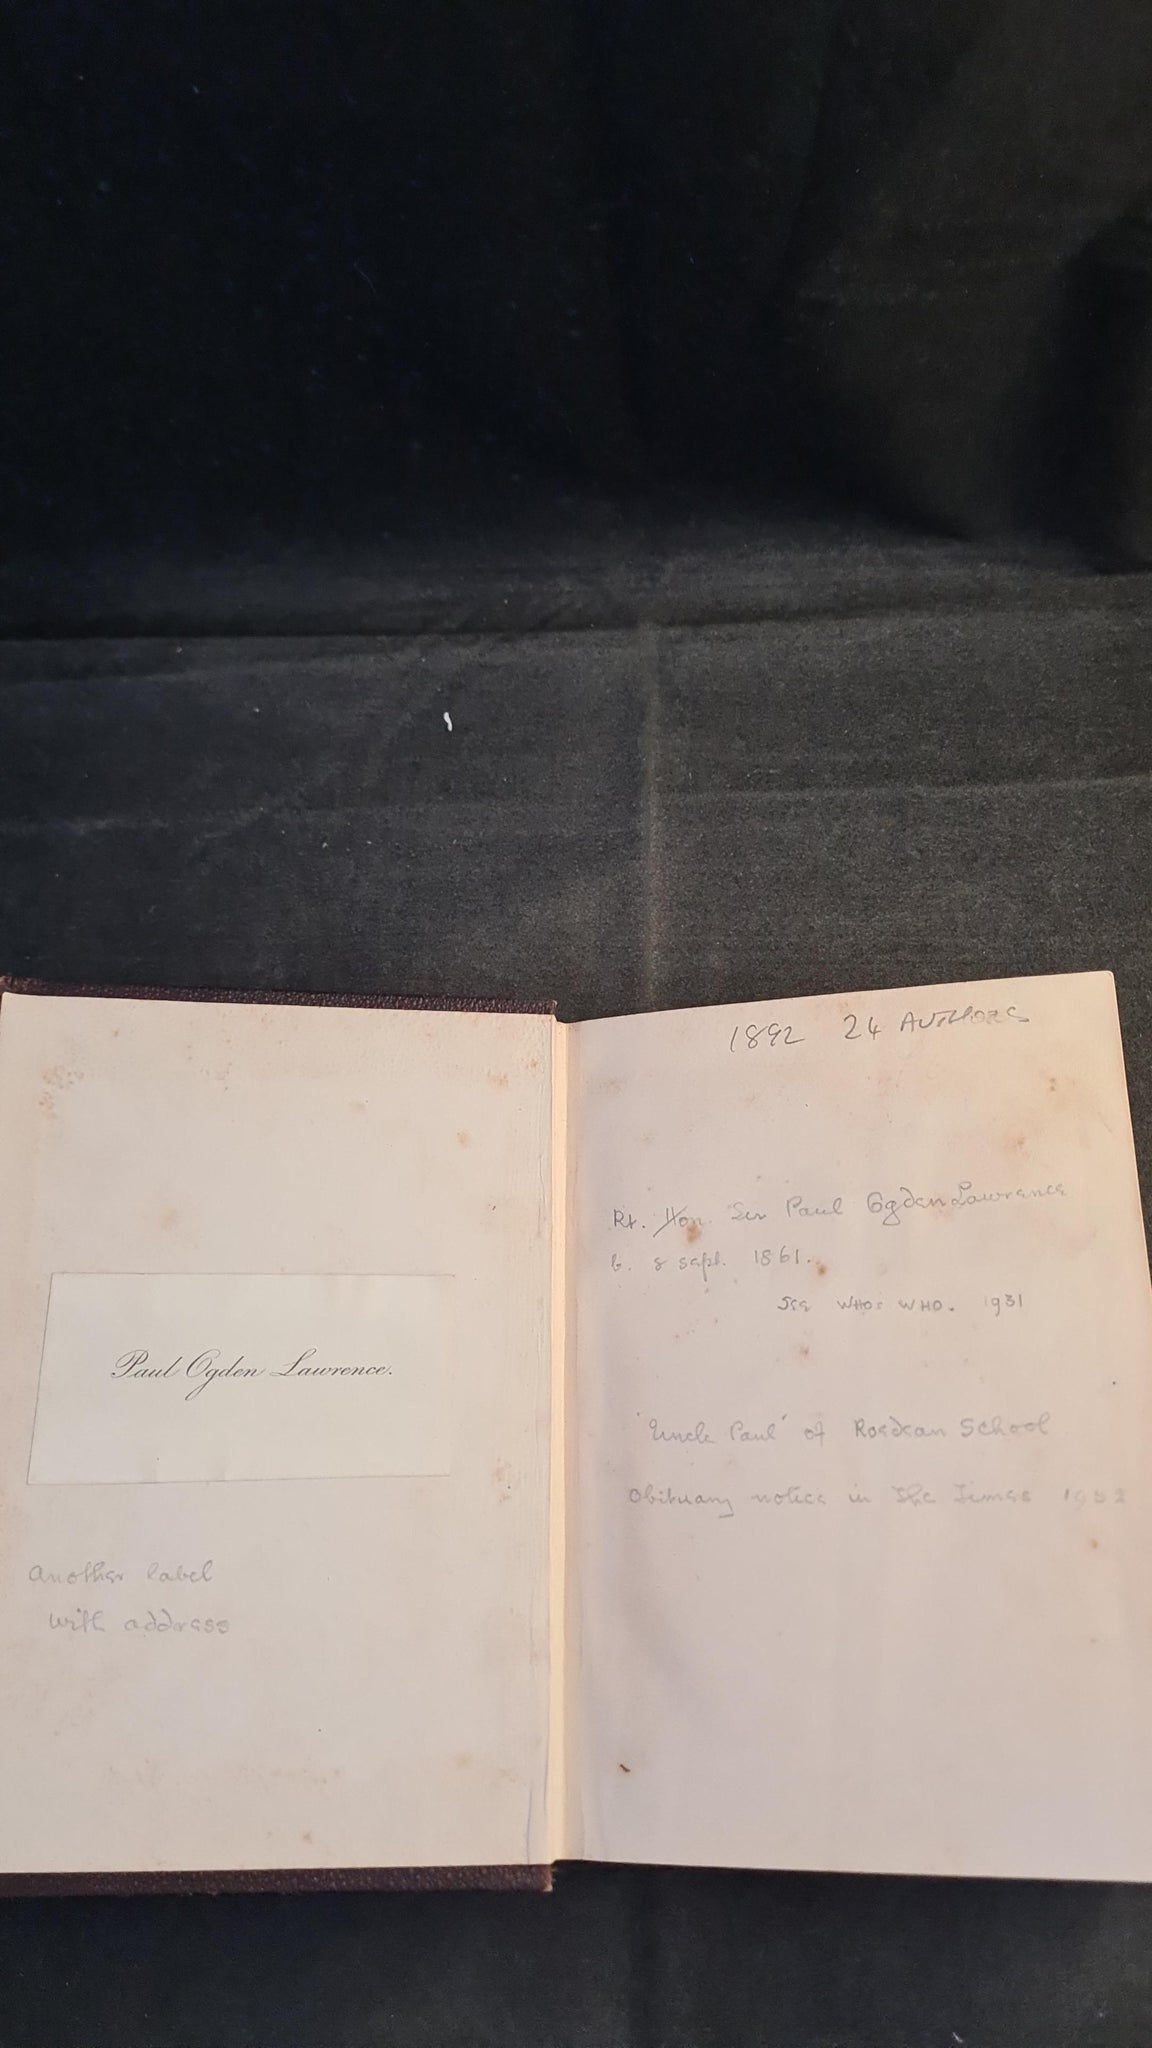 1892 24 AUTHORS
Rt. Hon. Sir Paul Ogden Lawrence
b. 8 Sept. 1861.
See WHOs WHO. 1931
'Uncle Paul' of Roedean School
Obituary notice in The Times 1952
Paul Ogden Lawrence.
Another label
with address